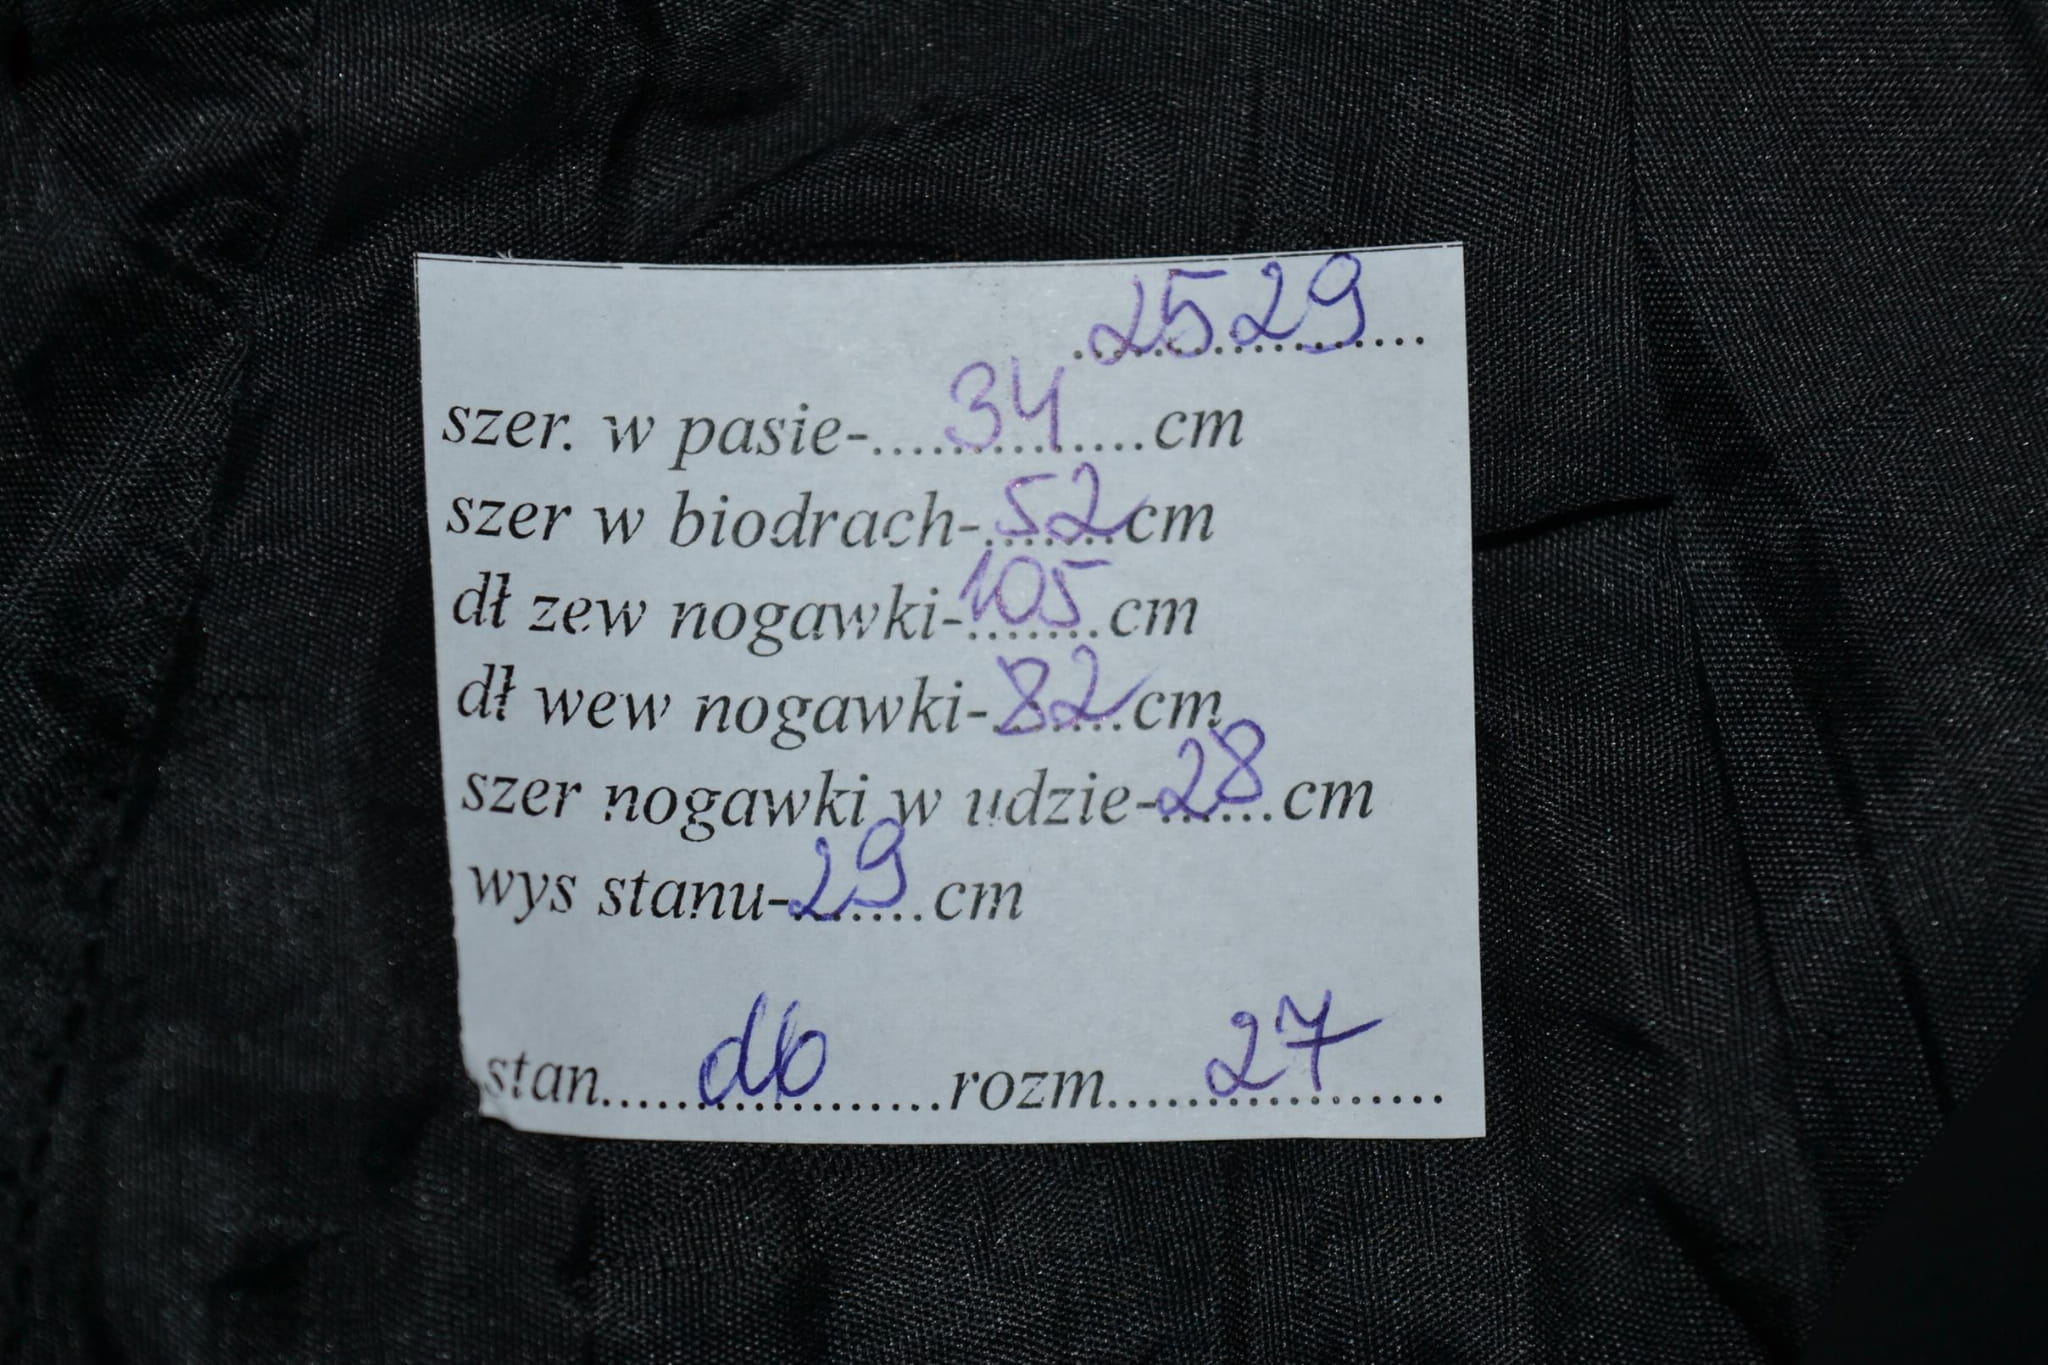 ....2529....
szer. w pasie-....34....cm
szer w biodrach-..52..cm
dł zew nogawki-105..cm
dł wew nogawki-82..cm
szer nogawki w udzie-28..cm
wys stanu-29..cm
stan....db....rozm....27....